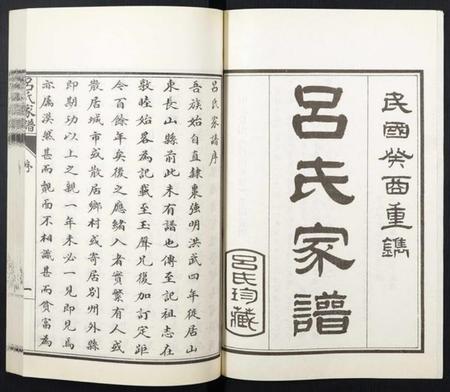 民國癸酉重鐫
呂氏家譜
呂氏珍藏
呂氏家譜序
吾族始自直隸棗強明洪武四年徙居山
東長山縣前此未有譜也傳至記祖志在
敦睦始畧為記載至玉聲兄復加訂定距
今百餘年矣後之應緒入者實繁有人或
散居城市或散居鄉村或寄居別州外縣
即期功以上之親一年未必一見即見焉
亦属漠然甚而覿面不相識甚而貧富為
呂氏家譜
序
一